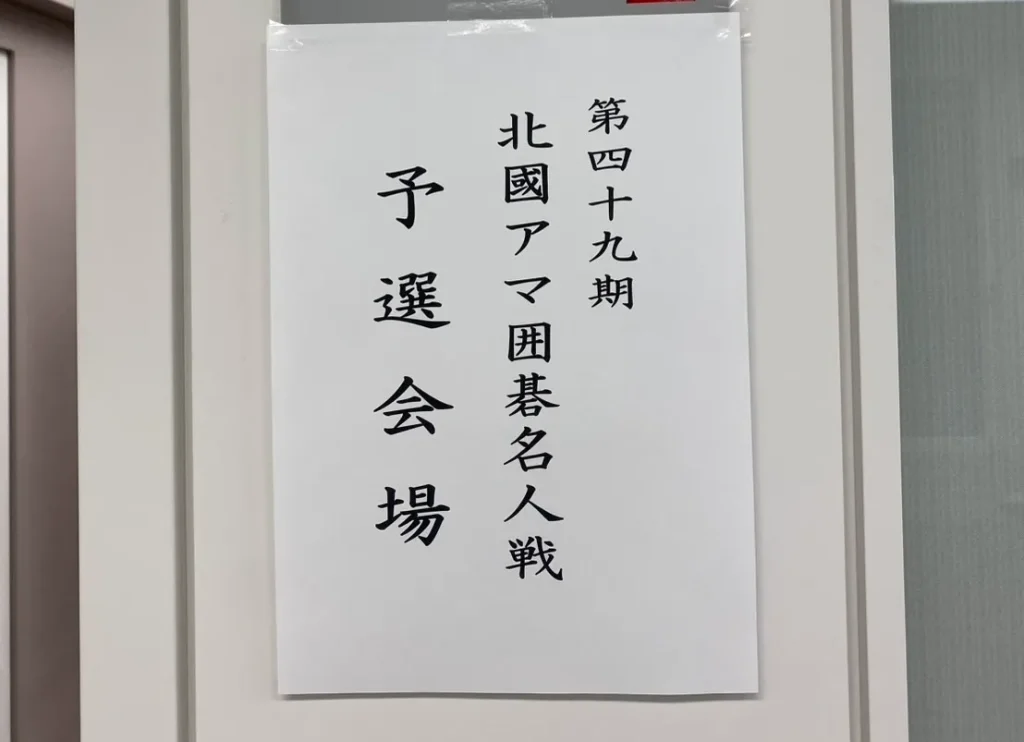 第四十九期
北國アマ囲碁名人戦
予選会場